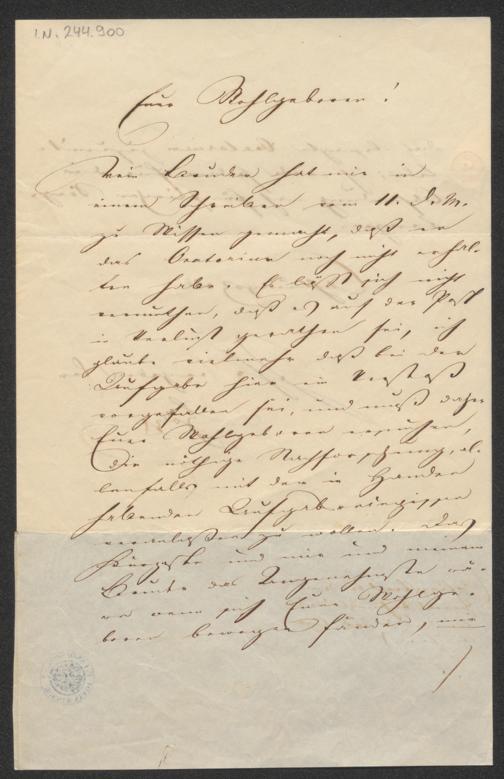 I.N. 244.900
Euer Wohlgeboren!
Mein Bruder hat mir in
einem Schreiben vom 11. d. M.
zu Wissen gemacht, daß er
das Oratorium noch nicht erhal-
ten habe. Es läßt sich nicht
vermuthen, daß es auf der Post
in Verlust gerathen sei, ich
glaube vielmehr daß bei der
Aufgabe hier ein Verstoß
vorgefallen sei, und muß daher
Euer Wohlgeboren ersuchen,
die nöthige Nachforschung, al-
lenfalls mit der in Handen
habenden Aufgabs
veranlaßen zu wollen. Das
Kürzeste und mir und meinem
Bruder das Angenehmste wä-
re wenn sich Euer Wohlge-
boren bewogen fänden, mir
./.